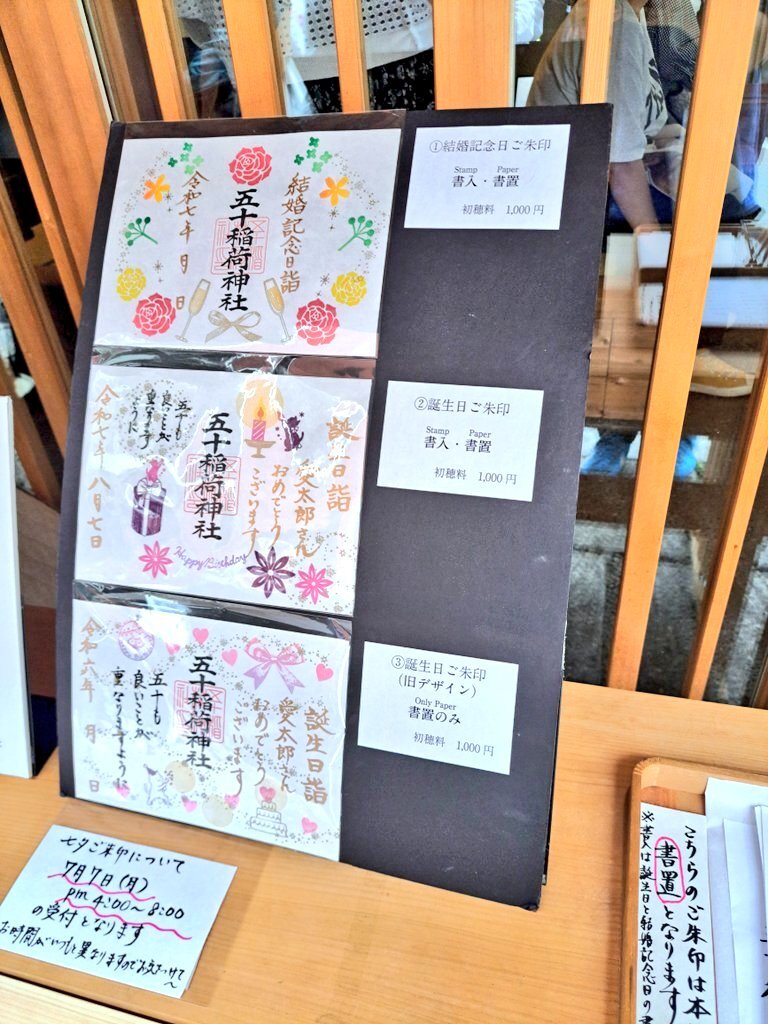 結婚記念日詣
五十稲荷神社
令和七年 月 日
①結婚記念日ご朱印
Stamp Paper
書入・書置
初穂料 1,000円
誕生日詣
愛太郎さん
おめでとう
ございます
五十稲荷神社
五十も
良いことが
重なります
ように
令和七年 八月七日
Happy Birthday
②誕生日ご朱印
Stamp Paper
書入・書置
初穂料 1,000円
誕生日詣
愛太郎さん
おめでとう
ございます
五十稲荷神社
五十も
良いことが
重なりますように
令和六年 月 日
③誕生日ご朱印
(旧デザイン)
Only Paper
書置のみ
初穂料 1,000円
七夕ご朱印について
7月7日(月)
pm 4:00~8:00
の受付となります
お時間がいつもと異なりますのでお気をつけて
~
こちらのご朱印は本
書置となります
※書入は誕生日と結婚記念日の